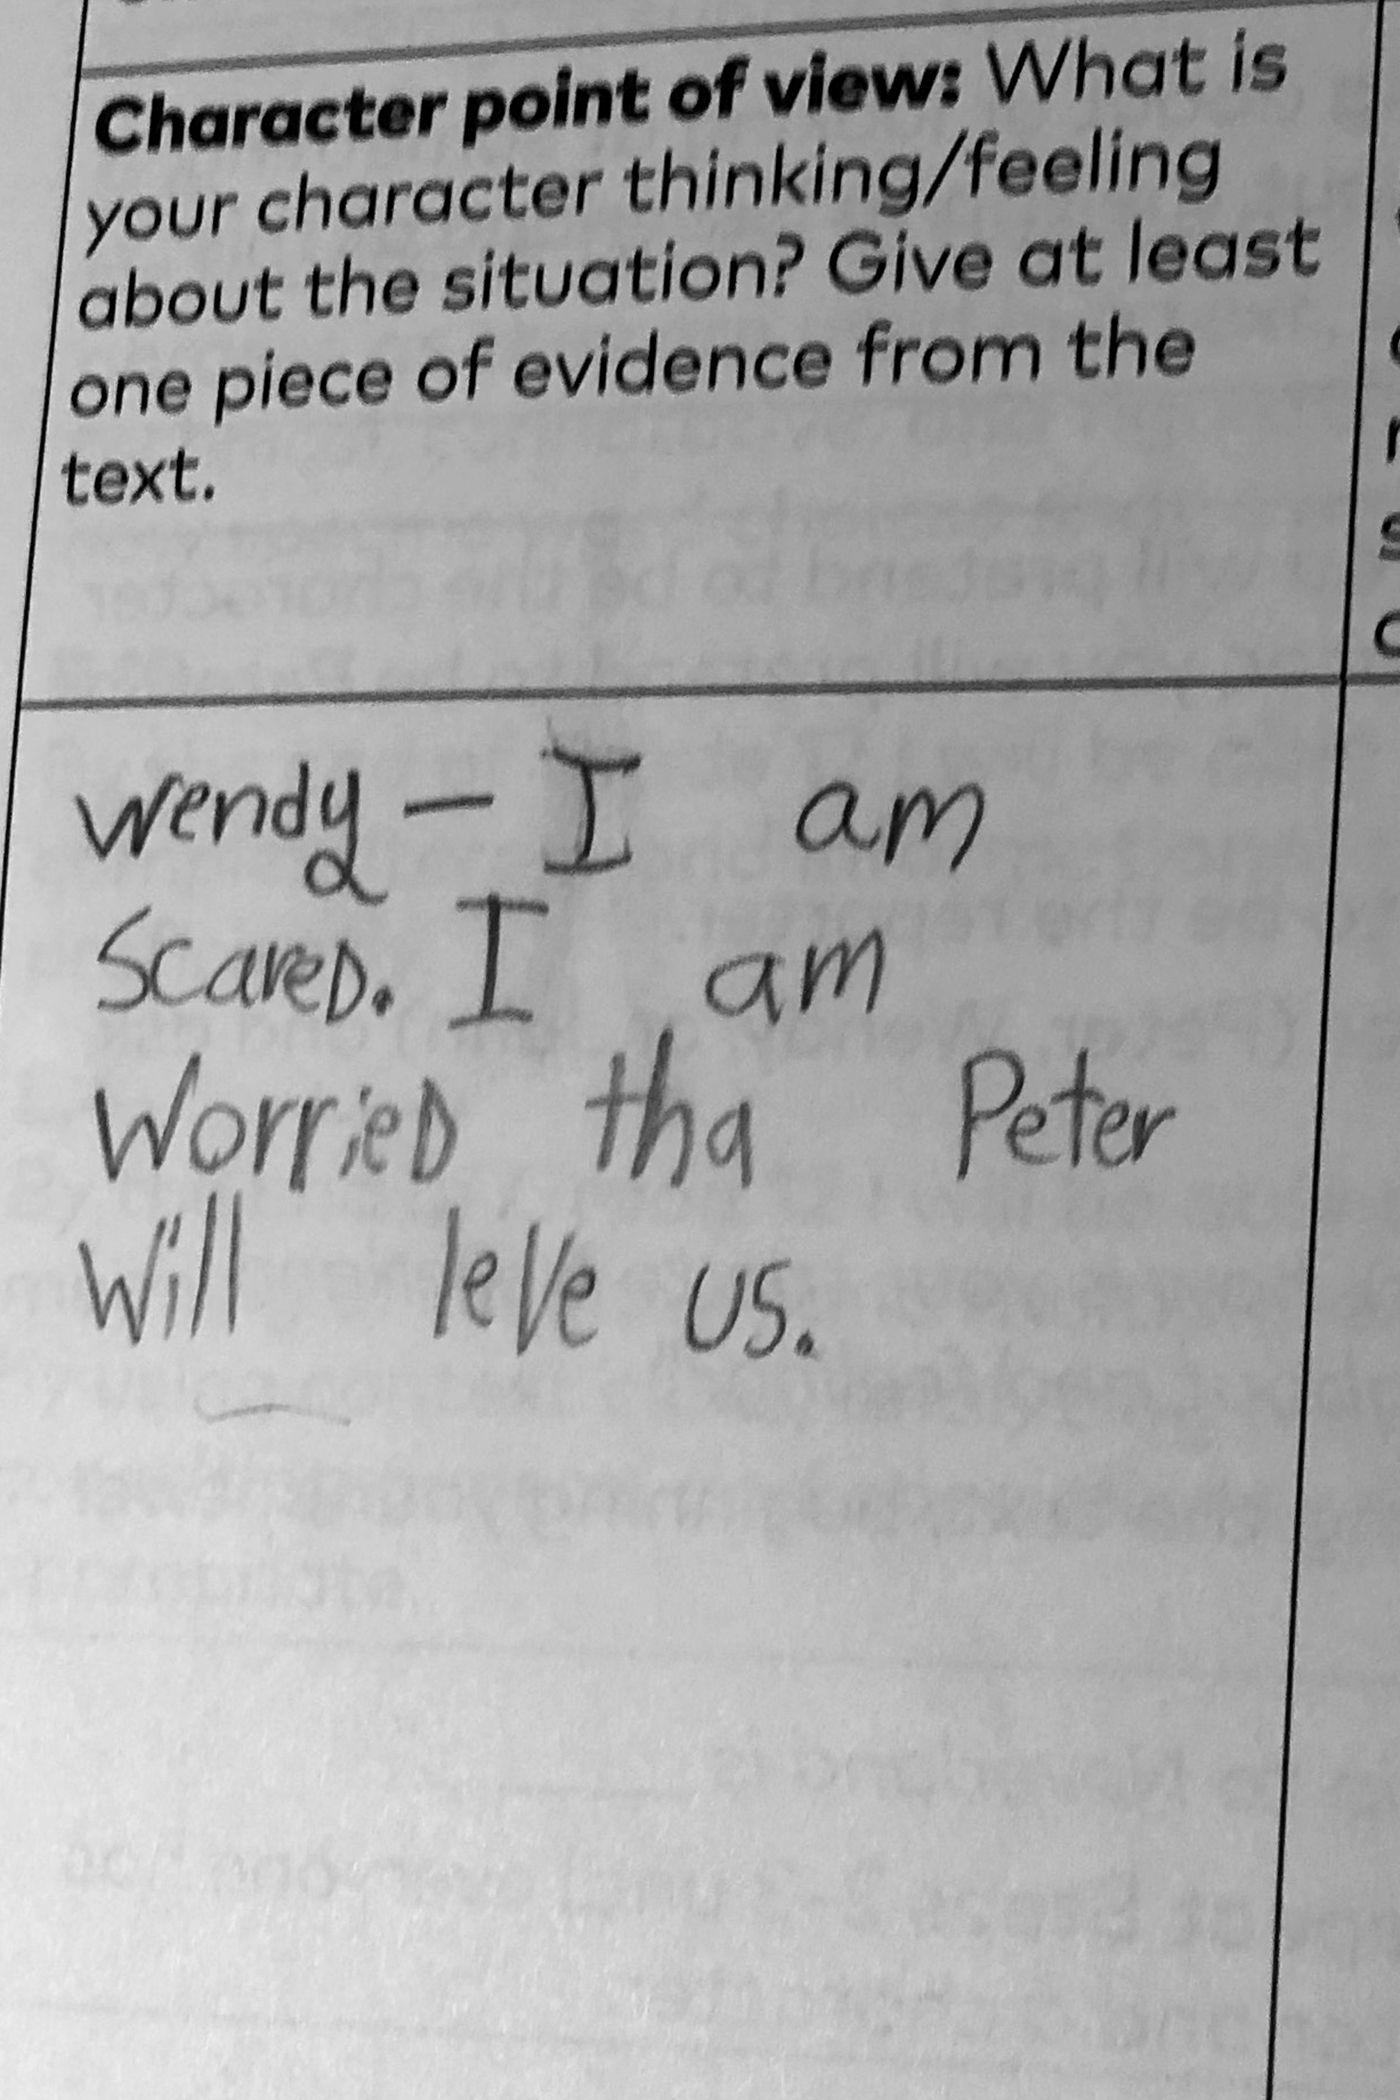 Character point of view: What is
your character thinking/feeling
about the situation? Give at least
one piece of evidence from the
text.
Wendy - I am
Scared. I am
Worried tha Peter
Will leve us.